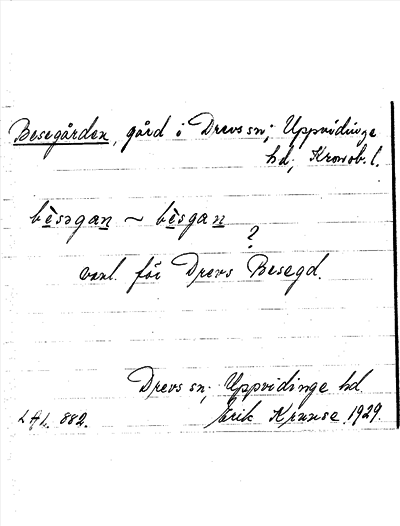 Besegården, gård i Drevs sn; Uppvidinge
hd; Kronob. l.
bèsəgan ~ bèsgan
?
vanl. för Drevs Besegd.
Drevs sn; Uppvidinge hd
LAL. 882. Erik Krause 1929.